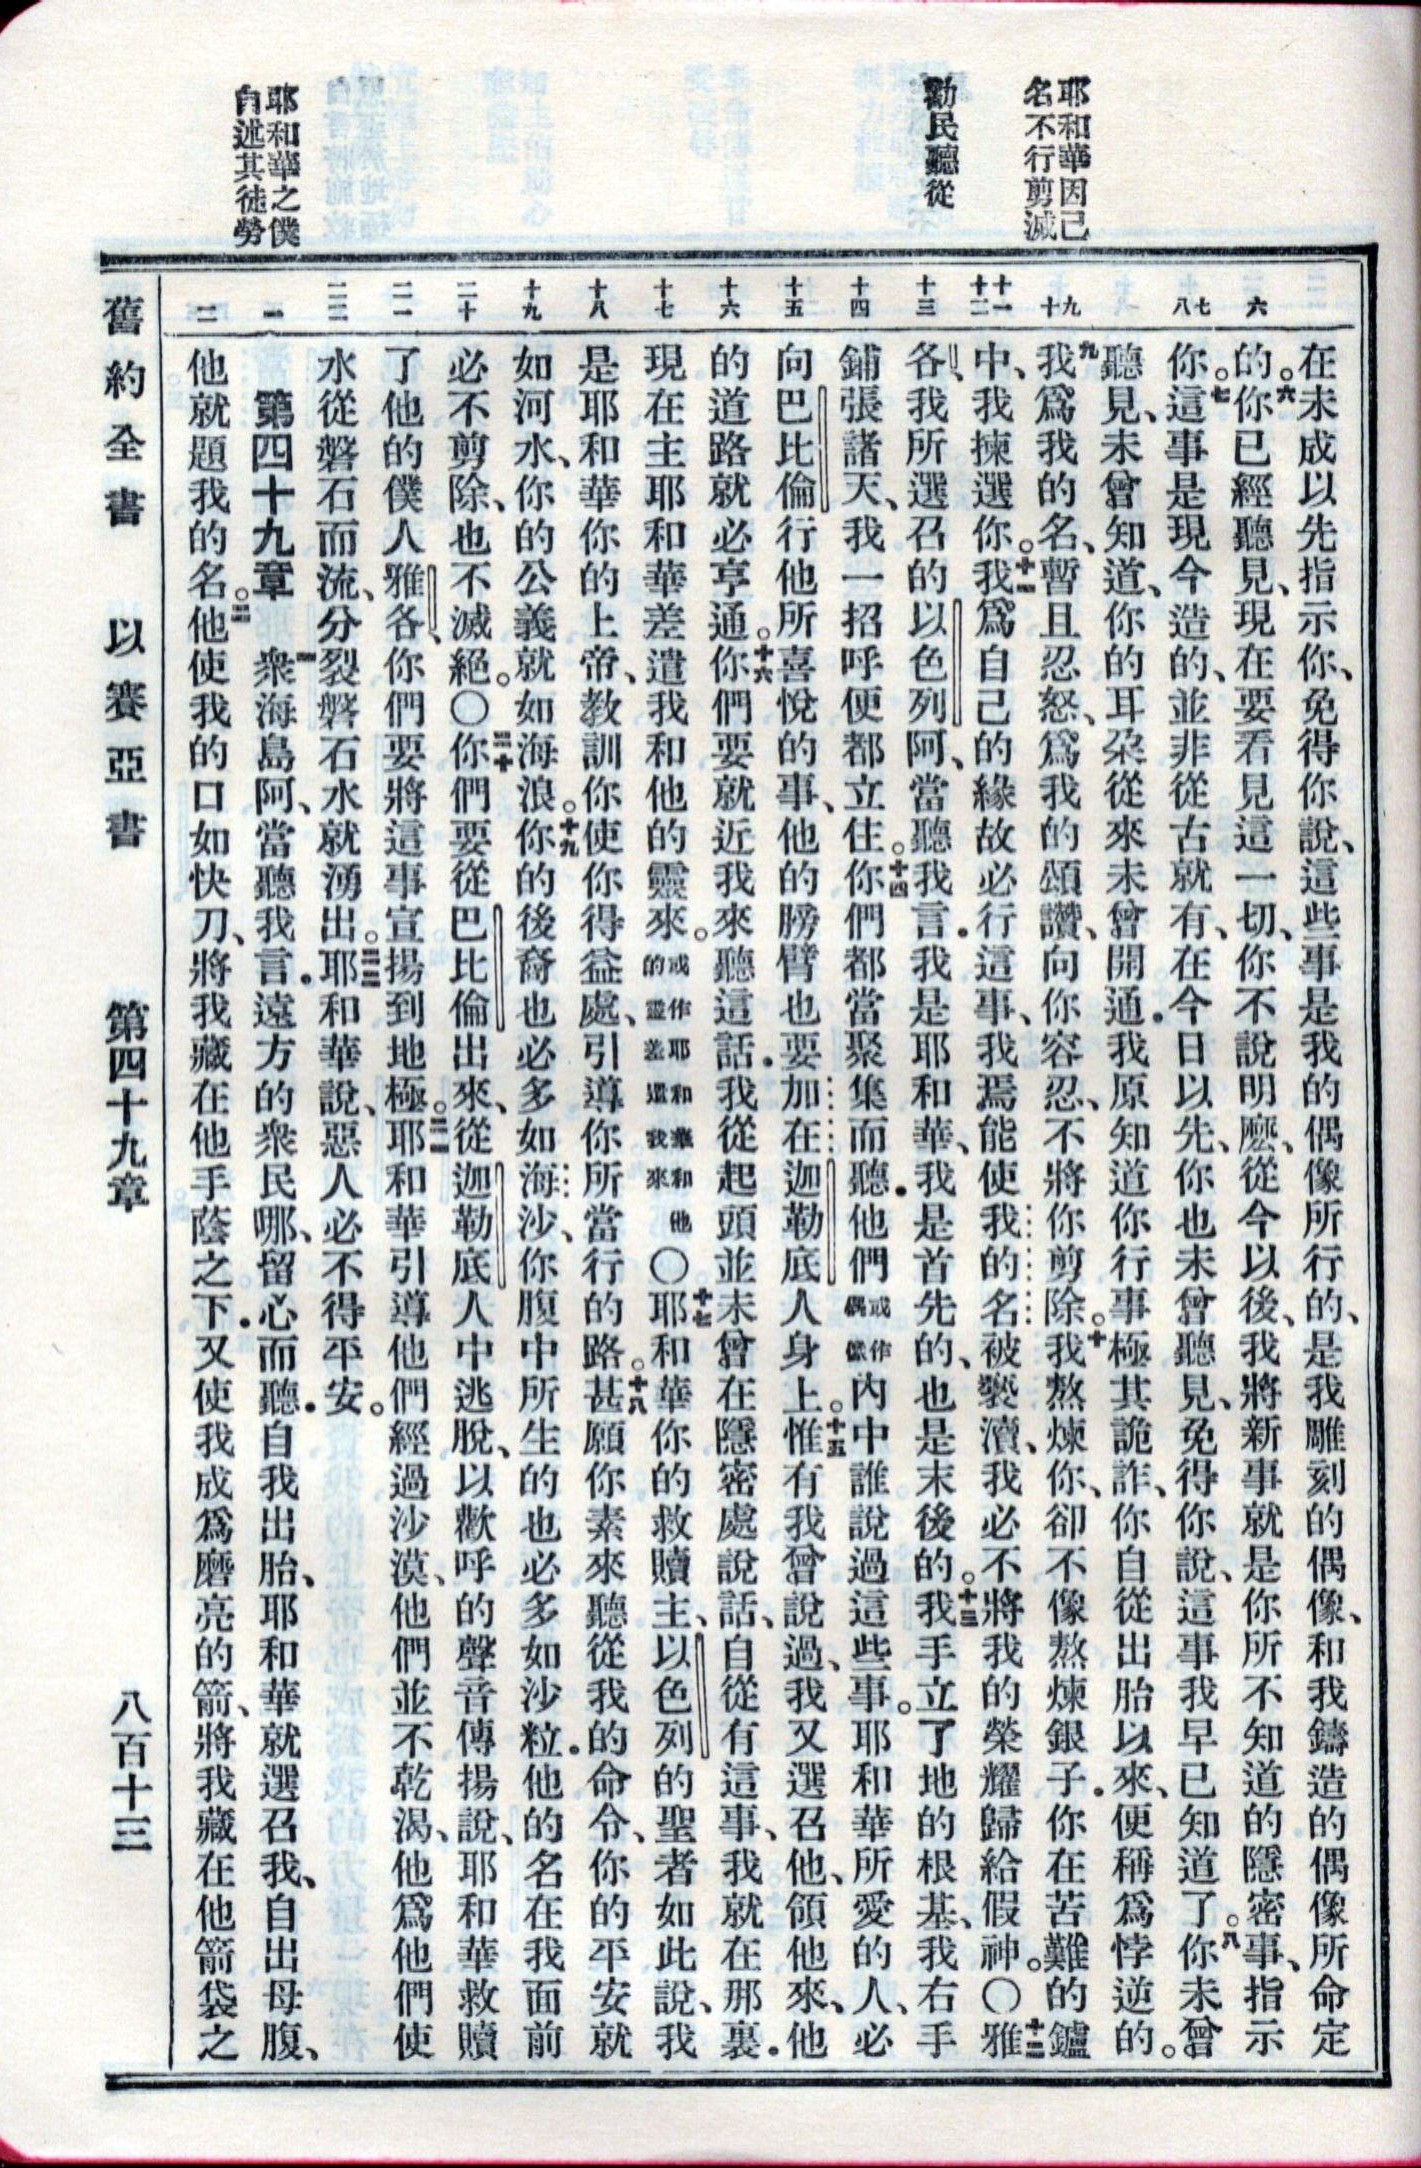 耶和華因己
名不行剪滅
勸民聽從
耶和華之僕
自述其徒勞
六
七
八
九
十
十一
十二
十三
十四
十五
十六
十七
十八
十九
二十
二一
二二
一
二
在未成以先指示你、免得你說、這些事是我的偶像所行的、是我雕刻的偶像、和我鑄造的偶像所命定
的。六你已經聽見、現在要看見這一切、你不說明麼、從今以後、我將新事就是你所不知道的隱密事、指示
你。七這事是現今造的、並非從古就有、在今日以先、你也未曾聽見、免得你說、這事我早已知道了。八你未曾
聽見、未曾知道、你的耳朶從來未曾開通．我原知道你行事極其詭詐、你自從出胎以來、便稱爲悖逆的。
九我爲我的名、暫且忍怒、爲我的頌讚、向你容忍、不將你剪除。十我熬煉你、卻不像熬煉銀子．你在苦難的鑪
中、我揀選你。十一我爲自己的緣故必行這事、我焉能使我的名被褻瀆、我必不將我的榮耀歸給假神。〇十二雅
各、我所選召的以色列阿、當聽我言．我是耶和華、我是首先的、也是末後的。十三我手立了地的根基、我右手
鋪張諸天、我一招呼便都立住。十四你們都當聚集而聽．他們或作偶像內中誰說過這些事。耶和華所愛的人、必
向巴比倫行他所喜悅的事、他的膀臂也要加在迦勒底人身上。十五惟有我曾說過、我又選召他、領他來、他
的道路就必亨通。十六你們要就近我來聽這話．我從起頭並未曾在隱密處說話、自從有這事、我就在那裏．
現在主耶和華差遣我和他的靈來。或作耶和華和他的靈差遣我來〇十七耶和華你的救贖主、以色列的聖者如此說、我
是耶和華你的上帝、教訓你使你得益處、引導你所當行的路。十八甚願你素來聽從我的命令、你的平安就
如河水、你的公義就如海浪。十九你的後裔也必多如海沙、你腹中所生的也必多如沙粒．他的名在我面前
必不剪除、也不滅絕。〇二十你們要從巴比倫出來、從迦勒底人中逃脫、以歡呼的聲音傳揚說、耶和華救贖
了他的僕人雅各、你們要將這事宣揚到地極。二一耶和華引導他們經過沙漠、他們並不乾渴、他爲他們使
水從磐石而流、分裂磐石水就湧出。二二耶和華說、惡人必不得平安。
第四十九章　一衆海島阿、當聽我言．遠方的衆民哪、留心而聽．自我出胎、耶和華就選召我、自出母腹、
他就題我的名。二他使我的口如快刀、將我藏在他手蔭之下．又使我成爲磨亮的箭、將我藏在他箭袋之
舊約全書　以賽亞書　第四十九章　八百十三